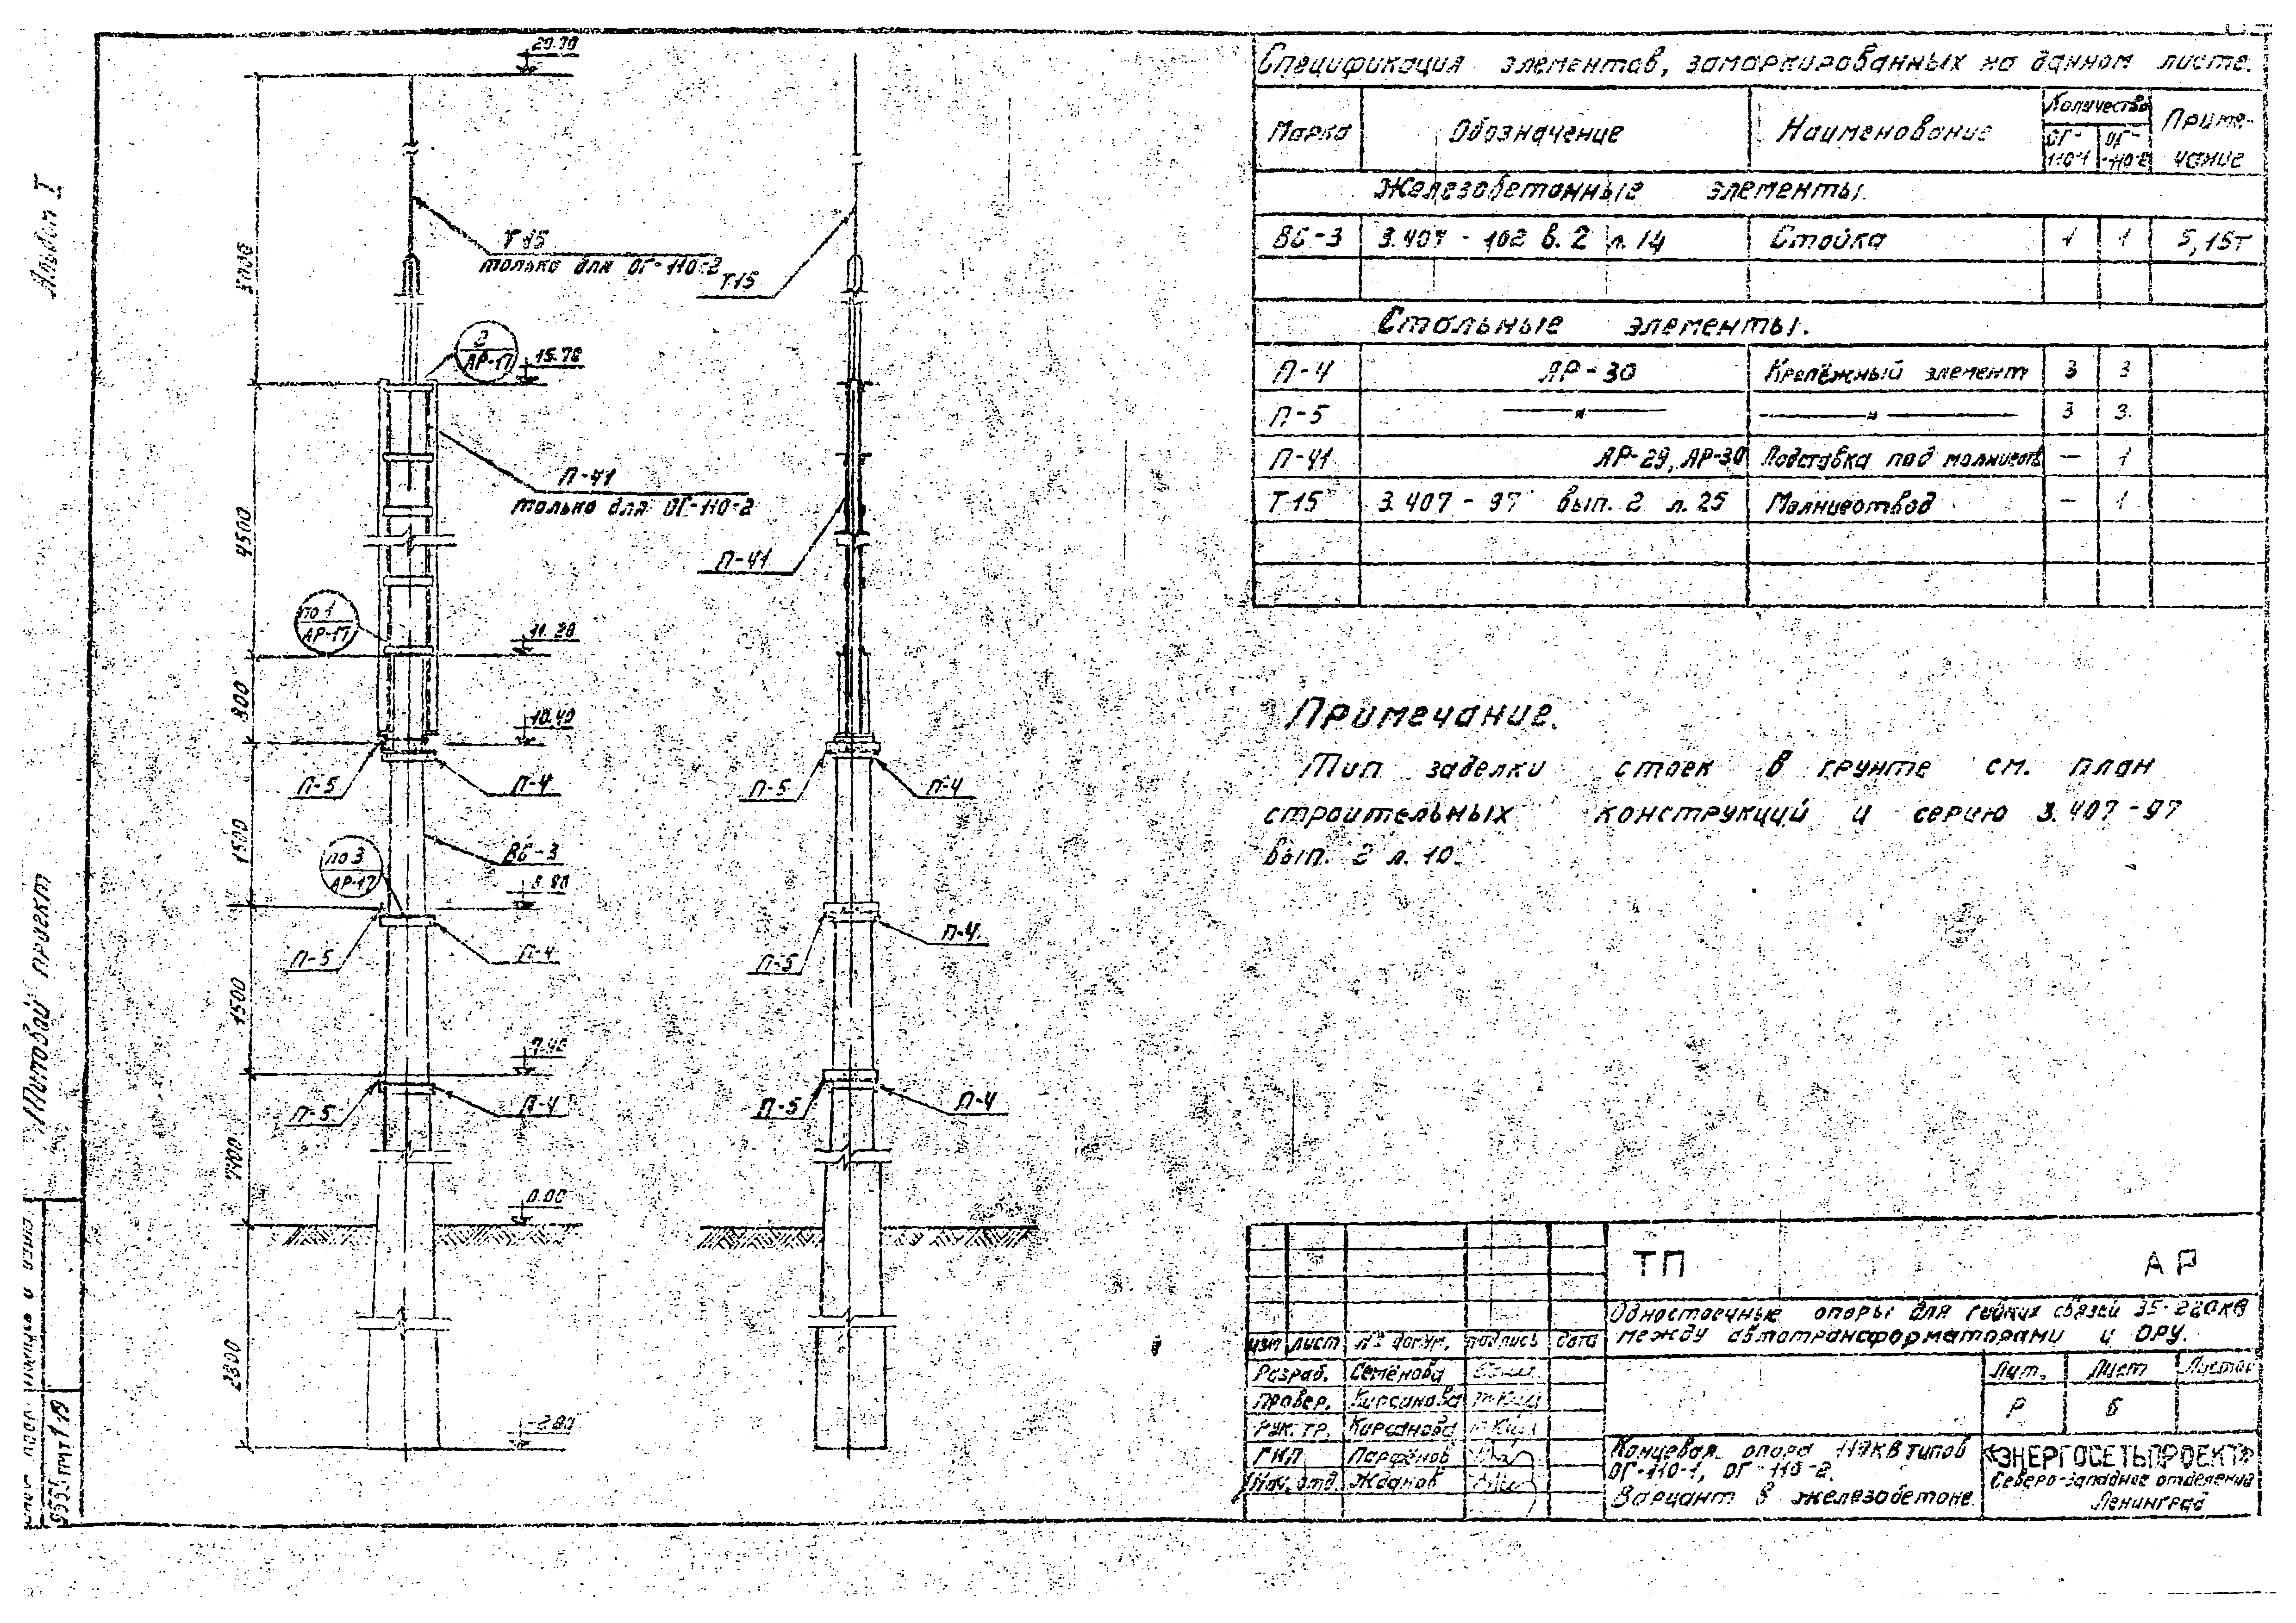 Альбом I
Типовой проект
15.70
11.20
10.40
7.40
0.00
4500
800
1500
1500
7400
Т15
только для ОГ-110-2
Т15
2
АР-17
П-41
только для ОГ-110-2
П-41
по 1
АР-17
П-5
П-4
П-5
П-4
по 3
АР-17
ВС-3
П-5
П-4
П-5
П-4
П-5
П-4
П-5
П-4
Спецификация элементов, замаркированных на данном листе.
Марка Обозначение Наименование Количество Приме-
чание
ОГ-110-1 ОГ-110-2
Железобетонные элементы.
ВС-3 3.407 - 102 в. 2 л. 14 Стойка 1 1 5,15т
Стальные элементы.
П-4 АР-30 Крепёжный элемент 3 3
П-5 —"— —"— 3 3
П-41 АР-29, АР-30 Подставка под молниеотв — 1
Т15 3.407 - 97 вып. 2 л. 25 Молниеотвод — 1
Примечание.
Тип заделки стоек в грунте см. план
строительных конструкций и серию 3.407-97
вып. 2 л. 10.
ТП АР
Одностоечные опоры для гибких связей 35-220кв
между автотрансформаторами и ОРУ.
изм лист № докум. подпись дата
Разраб. Семёнова
Провер. Кирсанова
Рук. гр. Кирсанова
ГИП Парфёнов
Нач. отд. Жданов
Лит. Лист Листов
Р 6
Концевая опора 110кв типов
ОГ-110-1, ОГ-110-2.
Вариант в железобетоне.
«ЭНЕРГОСЕТЬПРОЕКТ»
Северо-западное отделение
Ленинград